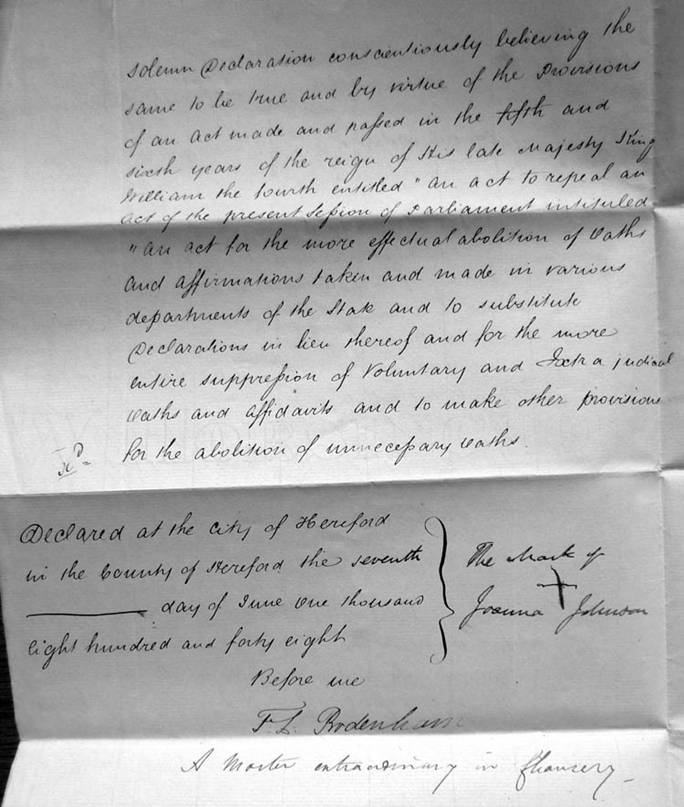 solemn Declaration conscientiously believing the
same to be true and by virtue of the Provisions
of an act made and passed in the fifth and
sixth years of the reign of His late Majesty King
William the fourth entitled "an act to repeal an
act of the present Session of Parliament intituled
"an act for the more effectual abolition of Oaths
and affirmations taken and made in various
departments of the State and to substitute
Declarations in lieu thereof and for the more
entire suppression of Voluntary and Extra judicial
Oaths and affidavits and to make other provisions
for the abolition of unnecessary Oaths.
Declared at the city of Hereford
in the County of Hereford the seventh
day of June One thousand
eight hundred and forty eight
The Mark of
Joanna Johnson
Before me
F. L. Bodenham
A Master extraordinary in Chancery